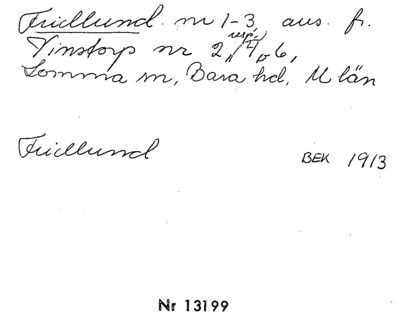 Fridlund nr 1-3, avs. fr.
Vinstorp nr 2, resp. 4 o 6,
Lomma sn, Bara hd, M län
Fridlund BEK 1913
Nr 13199